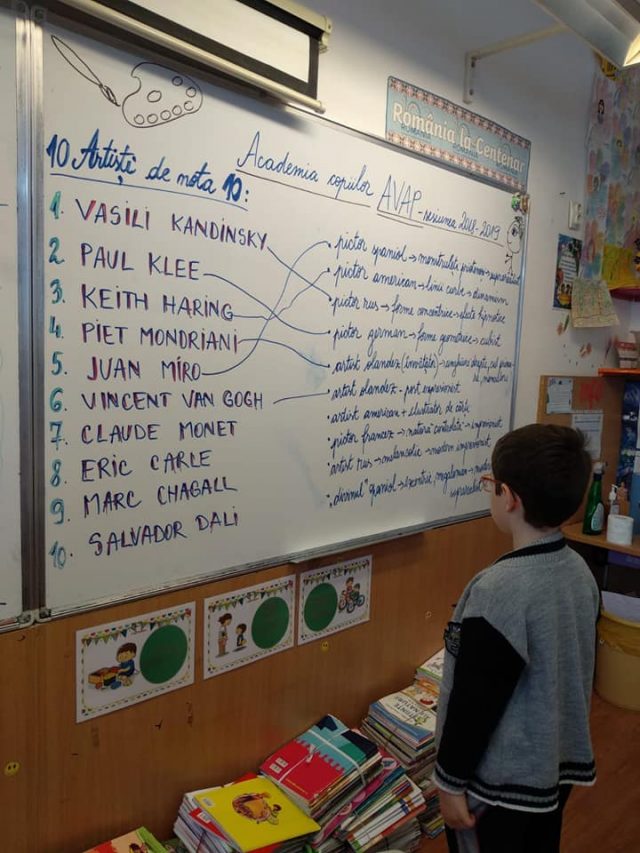 România la Centenar
10 Artiști de nota 10:
Academia copiilor
AVAP - sesiunea 2018-2019
1. VASILI KANDINSKY
2 PAUL KLEE
3. KEITH HARING
4. PIET MONDRIANI
5. JUAN MIRO
6. VINCENT VAN GOGH
7. CLAUDE MONET
8. ERIC CARLE
9. MARC CHAGALL
10. SALVADOR DALI
• pictor spaniol → suprarealist
• pictor american → linii curbe → dinamism
• pictor rus → forme concentrice → efecte hipnotice
• pictor german → forme geometrice → cubist
• artist olandez (învățător) → unghiuri drepte,
• artist olandez - post expresionist
• artist american + ilustrator de carte
• pictor francez → natură → impresionist
• artist rus → melancolic → modern
"divinul" spaniol → excentric, megaloman →
suprarealist